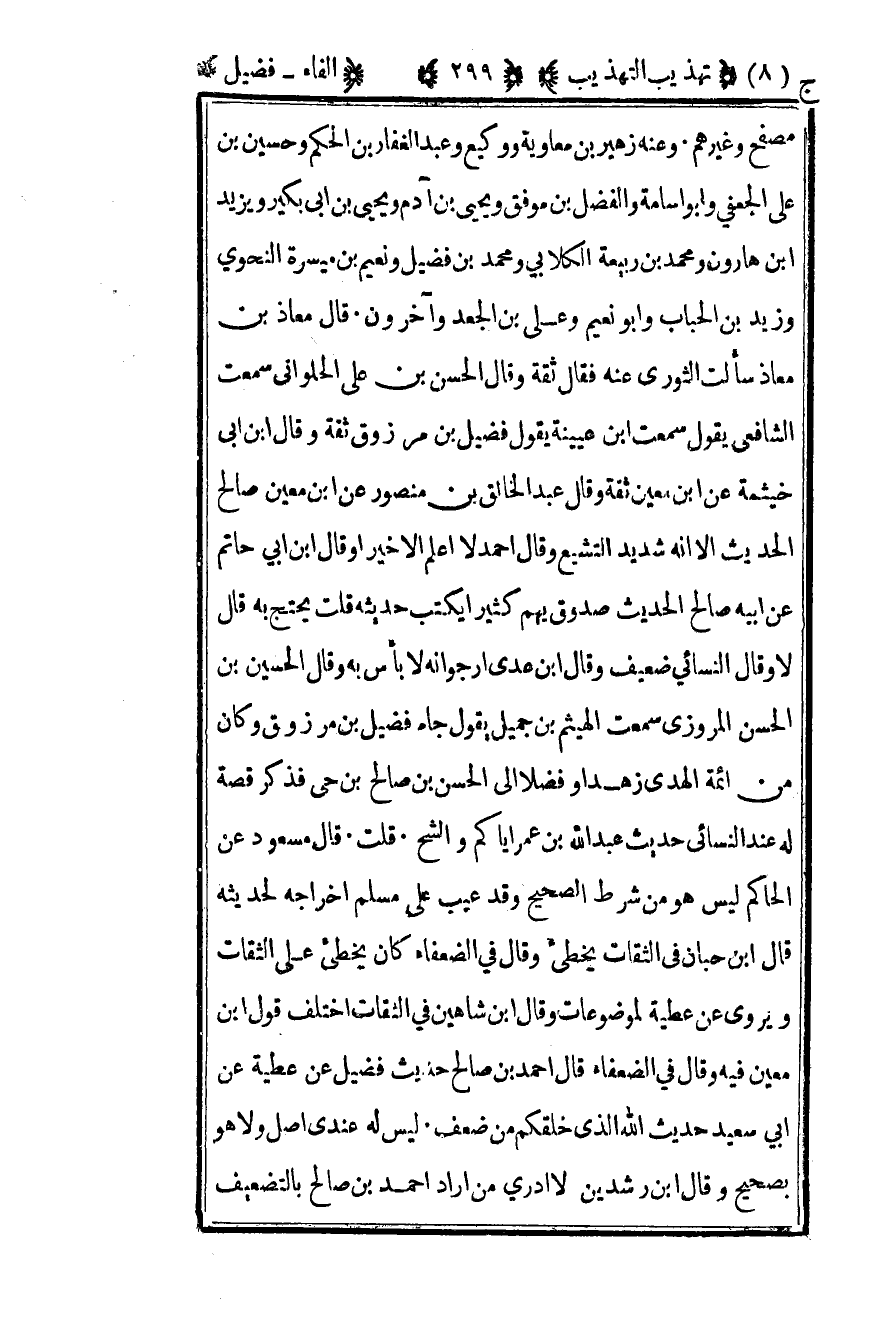 ج (٨) تهذيب التهذيب ٢٩٩ الفاء ـ فضيل
مصفح وغيرهم · وعنه زهير بن معاوية ووكيع وعبد الغفار بن الحكم وحسين بن
على الجعفي وابو اسامة والفضل بن موفق ويحيى بن آدم ويحيى بن ابى بكير ويزيد
ابن هارون ومحمد بن ربيعة الكلابي ومحمد بن فضيل ونعيم بن ميسرة النحوي
وزيد بن الحباب وابو نعيم وعلى بن الجعد وآخرون · قال معاذ بن
معاذ سألت الثورى عنه فقال ثقة وقال الحسن بن على الحلوانى سمعت
الشافعى يقول سمعت ابن عيينة يقول فضيل بن مرزوق ثقة وقال ابن ابى
خيثمة عن ابن معين ثقة وقال عبد الخالق بن منصور عن ابن معين صالح
الحديث الا انه شديد التشيع وقال احمد لا اعلم الا خيرا وقال ابن ابي حاتم
عن ابيه صالح الحديث صدوق يهم كثيرا يكتب حديثه قلت يحتج به قال
لا وقال النسائي ضعيف وقال ابن عدى ارجو انه لا بأس به وقال الحسين بن
الحسن المروزى سمعت الهيثم بن جميل يقول جاء فضيل بن مرزوق وكان
من ائمة الهدى زهدا وفضلا الى الحسن بن صالح بن حى فذكر قصة
له عند النسائى حديث عبد الله بن عمر اياكم والشح · قلت · قال مسعود عن
الحاكم ليس هو من شرط الصحيح وقد عيب على مسلم اخراجه لحديثه
قال ابن حبان فى الثقات يخطئ وقال في الضعفاء كان يخطئ على الثقات
ويروى عن عطية لموضوعات وقال ابن شاهين في الثقات اختلف قول ابن
معين فيه وقال في الضعفاء قال احمد بن صالح حديث فضيل عن عطية عن
ابي سعيد حديث الله الذى خلقكم من ضعف · ليس له عندى اصل ولا هو
بصحيح وقال ابن رشدين لا ادري من اراد احمد بن صالح بالتضعيف